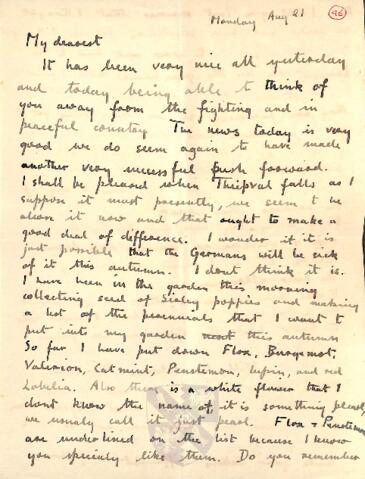 96
Monday Aug 21
My dearest
It has been very nice all yesterday
and today being able to think of
you away from the fighting and in
peaceful country The news today is very
good we do seem again to have made
another very successful push forward.
I shall be pleased when Thiepval falls as I
suppose it must presently, we seem to be
above it now and that ought to make a
good deal of difference. I wonder if it is
just possible that the Germans will be sick
of it this autumn. I dont think it is.
I have been in the garden this morning
collecting seed of Sirley poppies and making
a list of the perennials that I want to
put into my garden this autumn
So far I have put down Flox, Burgemot,
Valerian, Catmint, Penstemon, lupin, and red
Lobelia. Also there is a white flower that I
dont know the name of, it is something pearl,
we usually call it just pearl. Flox & Penstemon
are underlined on the list because I know
you specially like them. Do you remember